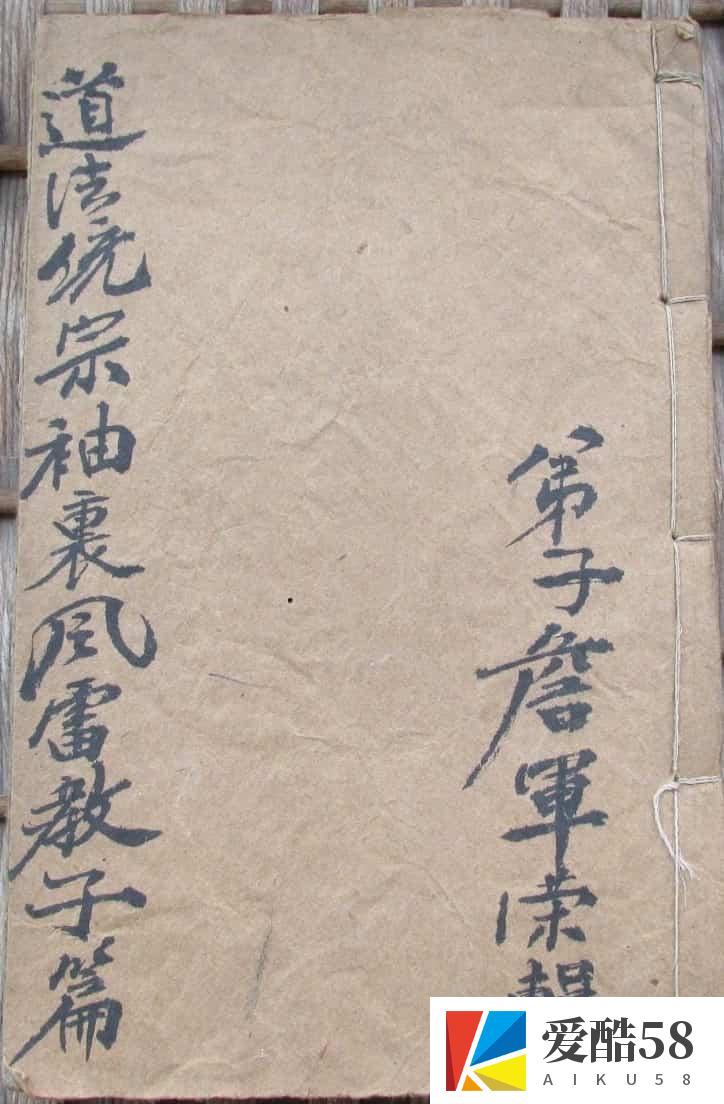 弟子詹軍荣輯
道法統宗袖裏風雷教子篇
爱酷58
AIKU58